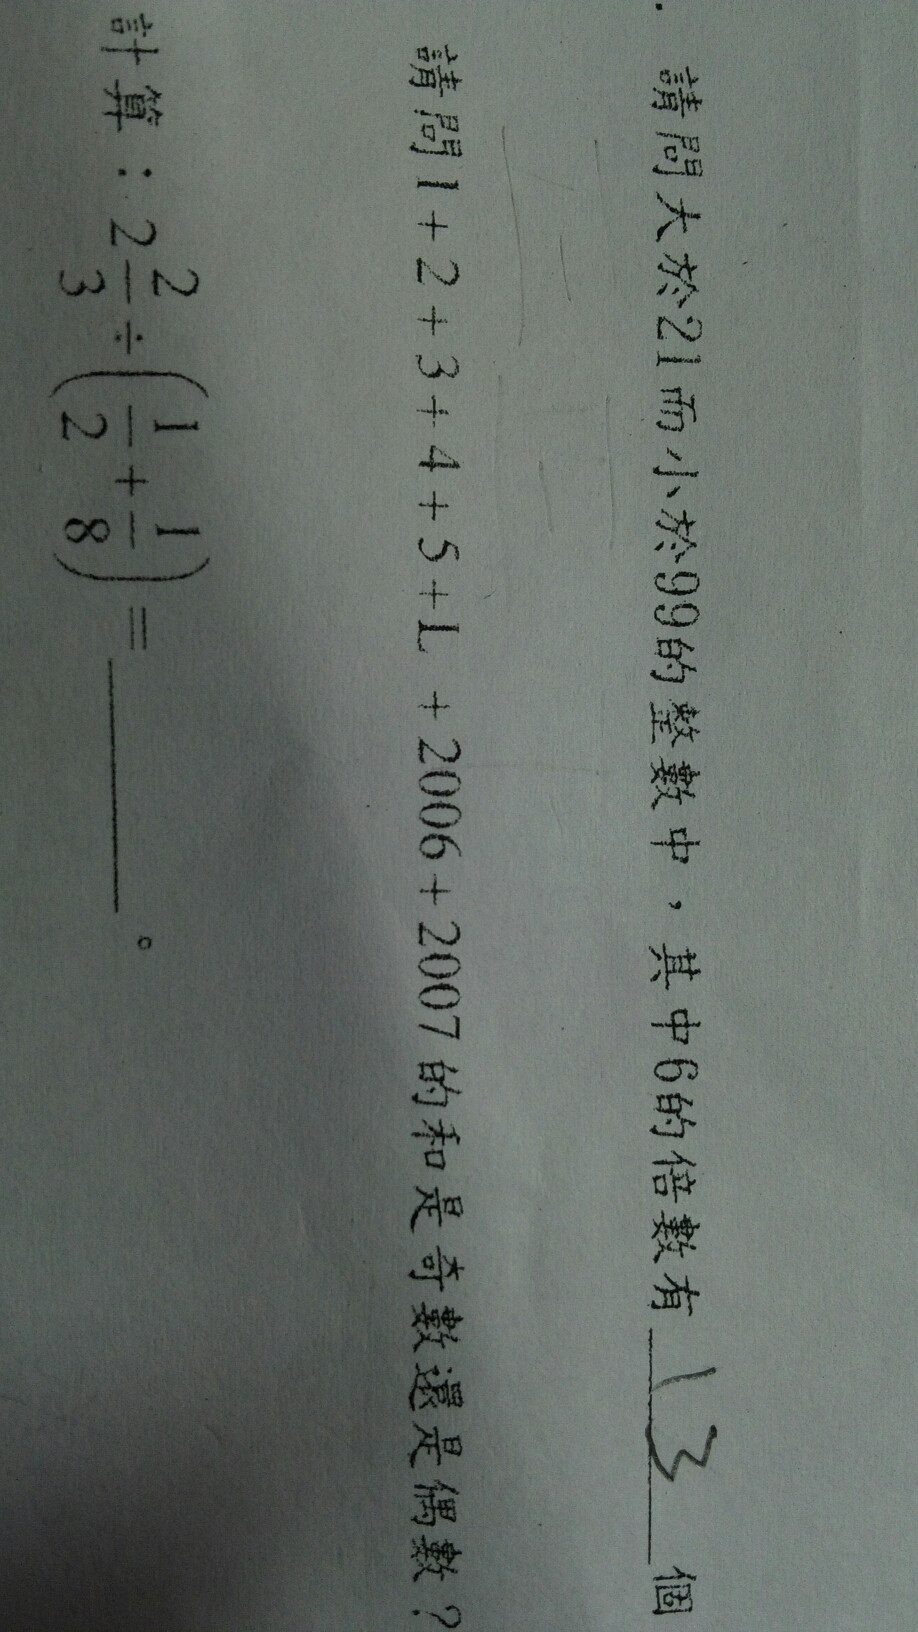 請問大於21而小於99的整數中，其中6的倍數有 13 個
請問1+2+3+4+5+L +2006+2007的和是奇數還是偶數？
計算：2 2/3 ÷ (1/2 + 1/8) = ＿＿＿＿。